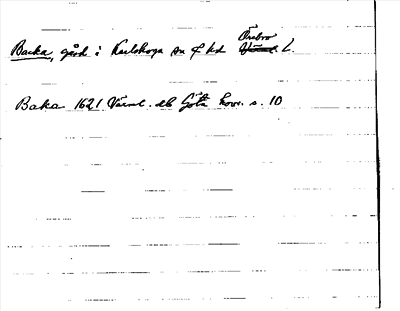 Backa, gård i Karlskoga sn o hd Örebro Värml. L.
Backa 1621 Värml. db Göta hovr. s. 10